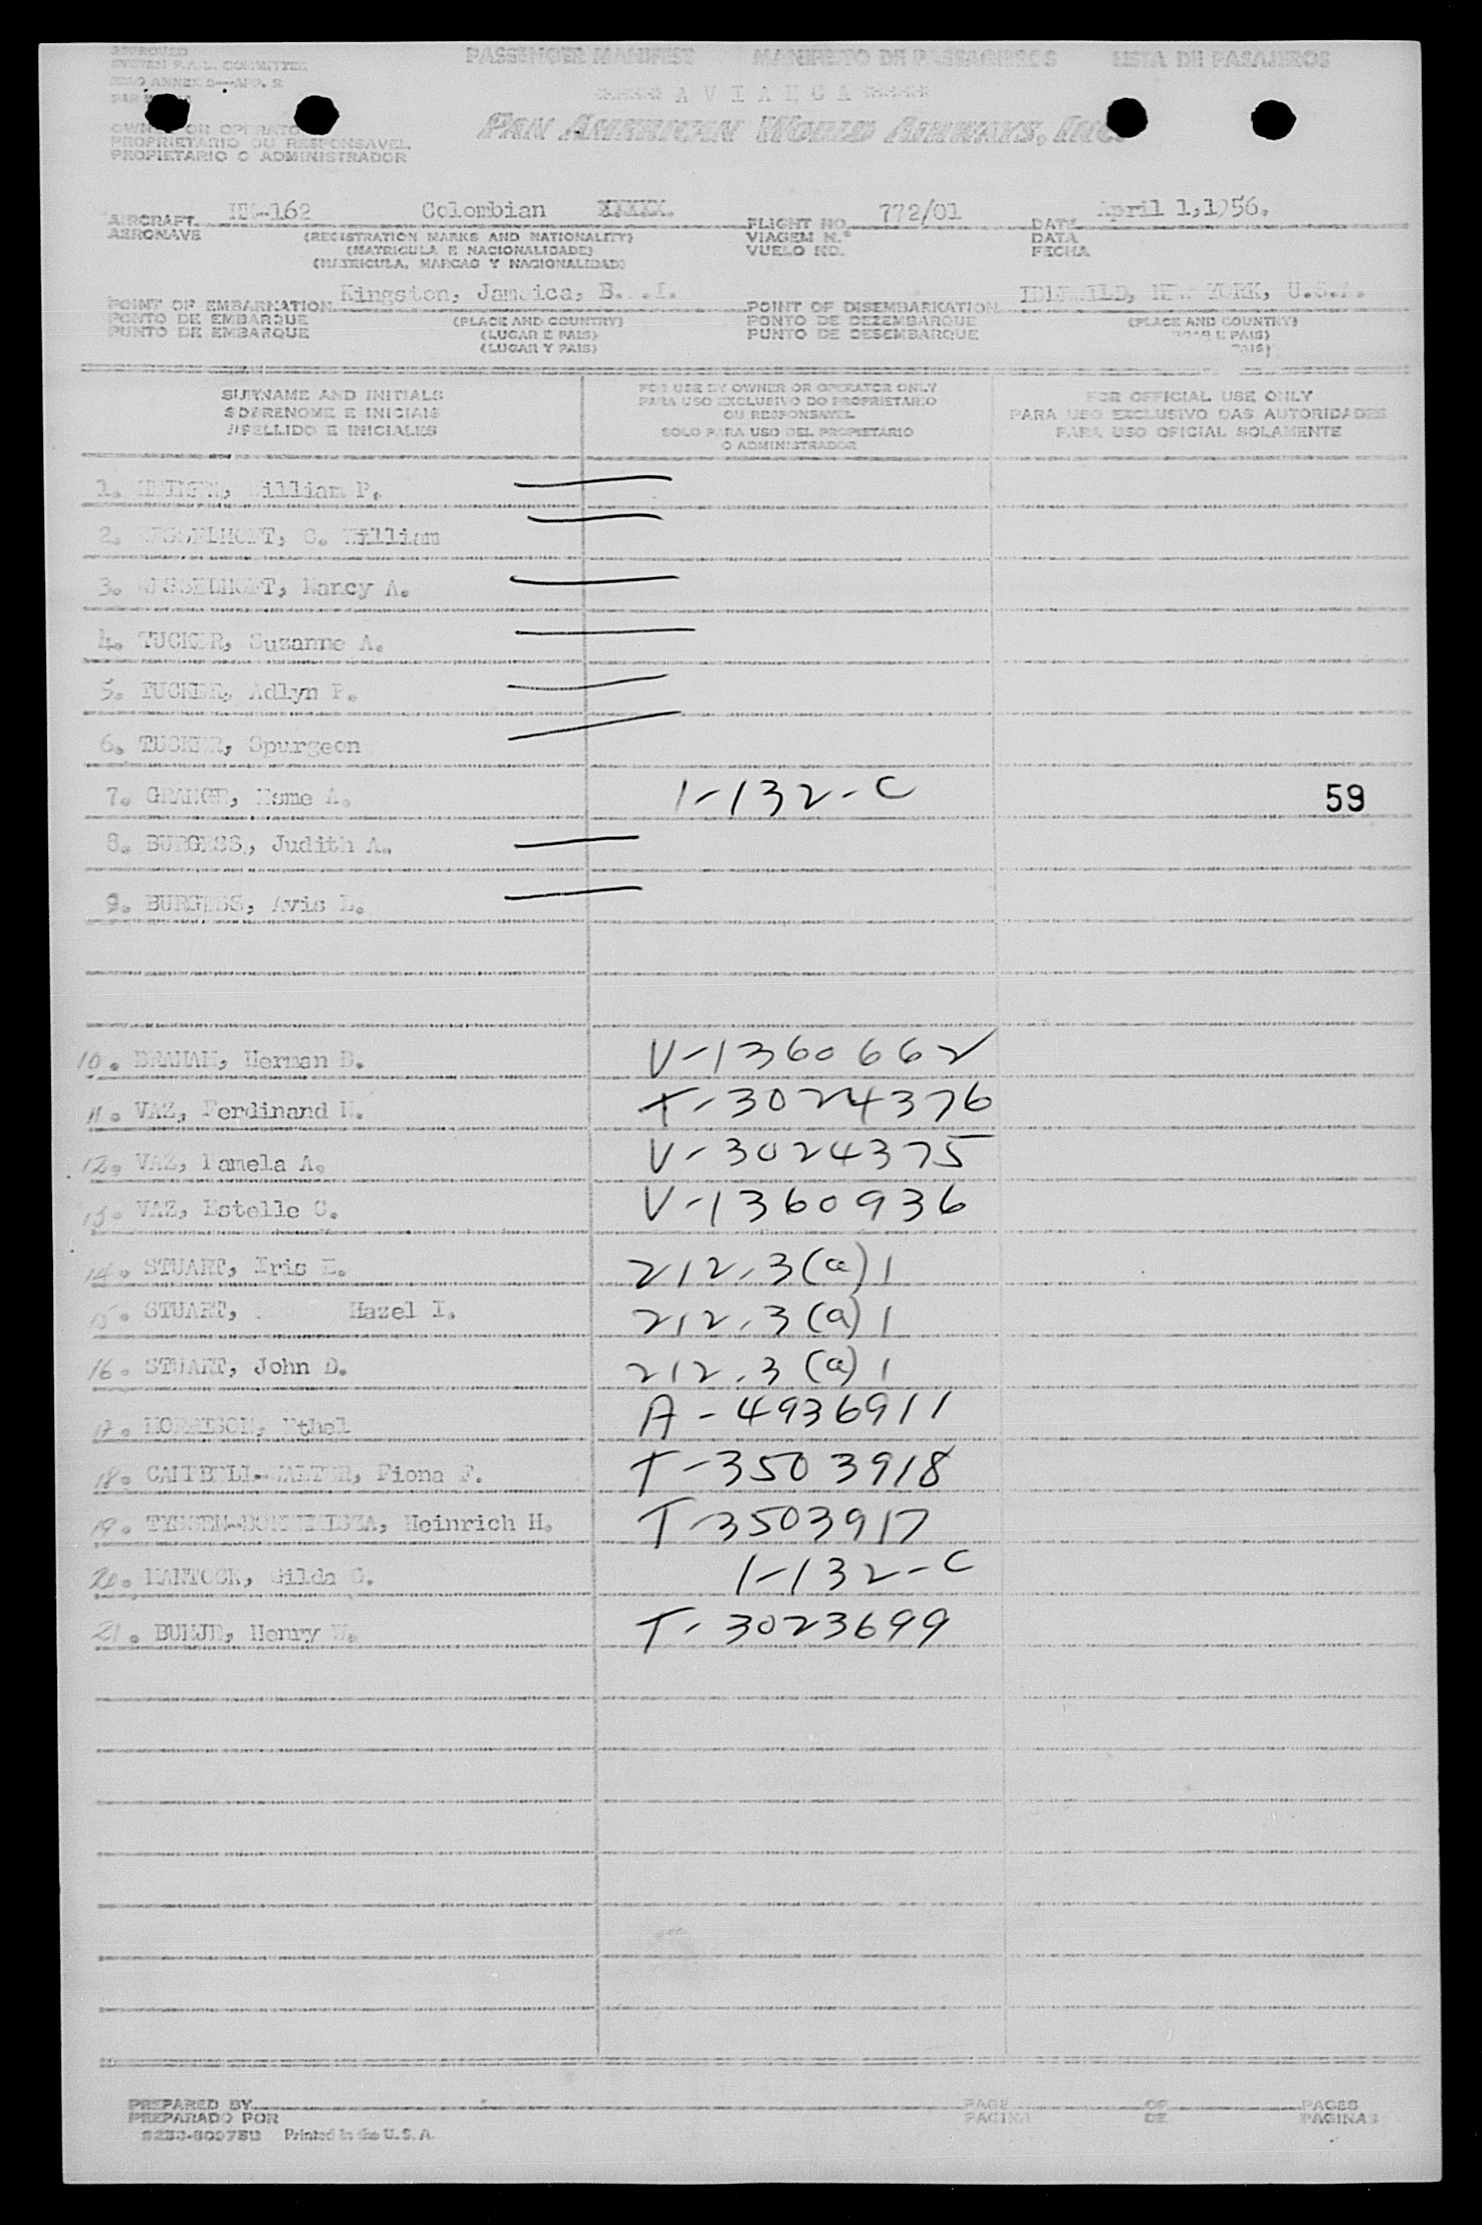 APPROVED
SYSTEM F.A.L. COMMITTEE
ICAO ANNEX 9—APP. 2
PASSENGER MANIFEST MANIFESTO DE PASSAGEIROS LISTA DE PASAJEROS
***** A V I A N C A *****
PAN AMERICAN WORLD AIRWAYS, INC.
OWNER OR OPERATOR
PROPRIETARIO OU RESPONSAVEL
PROPIETARIO O ADMINISTRADOR
AIRCRAFT HK-162 Colombian FLIGHT NO. 772/01 DATE April 1,1956.
AERONAVE (REGISTRATION MARKS AND NATIONALITY) VIAGEM N.º DATA
(MATRICULA E NACIONALIDADE) VUELO NO. FECHA
(MATRICULA, MARCAS Y NACIONALIDAD)
POINT OF EMBARKATION Kingston, Jamaica, B. .I. POINT OF DISEMBARKATION IDLEWILD, NEW YORK, U.S.A.
PONTO DE EMBARQUE (PLACE AND COUNTRY) PONTO DE DEZEMBARQUE (PLACE AND COUNTRY)
PUNTO DE EMBARQUE (LUGAR E PAIS) PUNTO DE DESEMBARQUE E PAIS)
(LUGAR Y PAIS) PAIS)
SURNAME AND INITIALS FOR USE BY OWNER OR OPERATOR ONLY FOR OFFICIAL USE ONLY
SOBRENOME E INICIAIS PARA USO EXCLUSIVO DO PROPRIETARIO PARA USO EXCLUSIVO DAS AUTORIDADES
APELLIDO E INICIALES OU RESPONSAVEL PARA USO OFICIAL SOLAMENTE
SOLO PARA USO DEL PROPIETARIO
O ADMINISTRADOR
1. William P.
2. C. William
3. Nancy A.
4. TUCKER, Suzanne A.
5. TUCKER, Adlyn P.
6. TUCKER, Spurgeon
7. A. 1-132-C 59
8. BURGESS, Judith A.
9. BURGESS, Avis L.
10. BRAHAM, Herman B. V-1360662
11. VAZ, Ferdinand T-3024376
12. VAZ, Pamela A. V-3024375
13. VAZ, Estelle C. V-1360936
14. STUART, E. 212.3(a)1
15. STUART, Hazel I. 212.3(a)1
16. STUART, John D. 212.3(a)1
17. MORRISON, Ethel A-4936911
18. Fiona F. T-3503918
19. Heinrich H. T-3503917
20. Gilda C. 1-132-C
21. Henry T-3023699
PREPARED BY PAGE OF PAGES
PREPARADO POR PAGINA DE PAGINAS
Printed in the U.S.A.